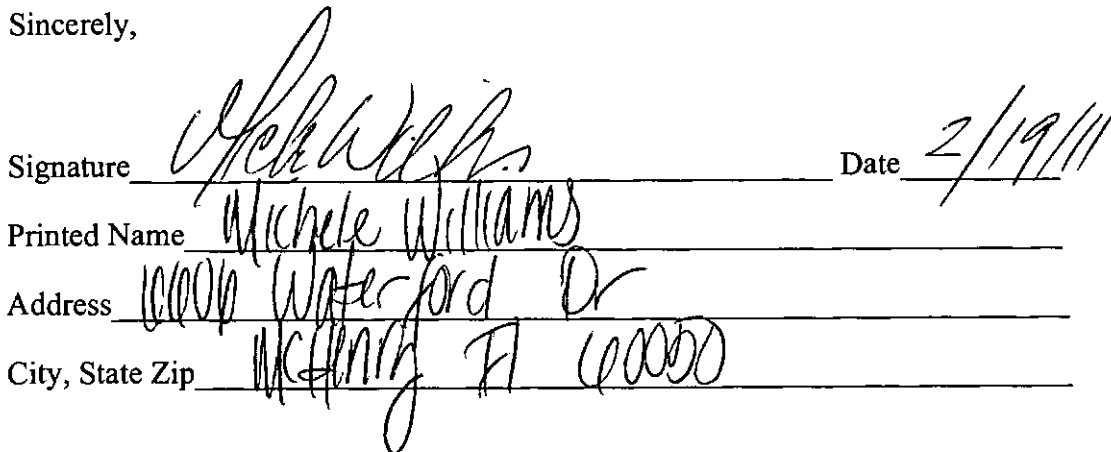 Sincerely,
Signature Date 2/19/11
Printed Name Michele Williams
Address Waterford Dr
City, State Zip McHenry Il 60050